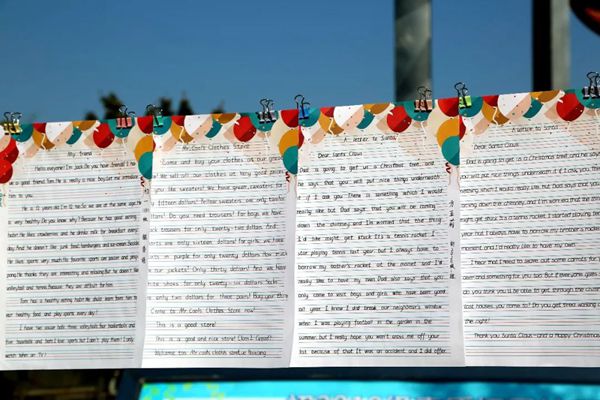 My friend
Hello, everyone! I'm Jack. Do you have friends? I have
a good friend, Tom. He is really a nice boy. Let me introduce
him to you.
Tom is 12 years old. I'm 12, too. So we are at the same age. He
is very healthy. Do you know why? Because he has good eating
habit. He likes strawberries and he drinks milk for breakfast every
day. And he doesn't like junk food, hamburgers and ice-cream. Besides,
he likes sports very much. His favorite sports are soccer and ping-
pong. He thinks they are interesting and relaxing. But he doesn't like
volleyball and tennis, because they are difficult for him.
Tom has a healthy eating habit. We should learn from him to
eat healthy food and play sports every day!
I have two soccer balls, three volleyballs, four basketballs and
five baseballs and bats. I love sports, but I don't play them. I only
watch them on TV!
Mr. Cool's Clothes Store
Come and buy your clothes at our great
sale! We sell all our clothes at very good prices.
Do you like sweaters? We have green sweaters for
only fifteen dollars! Yellow sweaters are only twelve
dollars! Do you need trousers? For boys, we have
black trousers for only twenty-two dollars. And
shorts are only sixteen dollars! For girls, we have
skirts in purple for only twenty dollars. For
our jackets? Only thirty dollars! And we have
the shoes for only twenty-six dollars. Socks
are only two dollars for three pairs! Buy your things
Come to Mr. Cool's Clothes Store now!
This is a good store!
This is a good and nice store! Class! Great!
Welcome to Mr. Cool's clothes store! Relaxing
A letter to Santa
Dear Santa Claus
Dad is going to get us a Christmas tree, and
he says that you will put nice things underneath
if I ask you. There is something which I would
really like, but Dad says that you will be coming
down the chimney, and I'm worried that the thing
I'd like might get stuck. It's a tennis racket. I
started playing tennis last year, but I always have to
borrow my brother's racket at the moment, and I'd
really like to have my own. Dad also says that you
only come to visit boys and girls who have been good
last year. I know I did break our neighbour's window
when I was playing football in the garden in the
summer, but I really hope you won't cross me off your
list because of that. It was an accident and I did offer
A letter to Santa
Dear Santa Claus
Dad is going to get us a Christmas tree, and he says
will put nice things underneath if I ask you. There
something which I would really like, but Dad says that you
be coming down the chimney, and I'm worried that the
might get stuck. It's a tennis racket. I started playing
year, but I always have to borrow my brother's racket
moment, and I'd really like to have my own.
I hear that I need to leave out some carrots for
and something for you, too. But if everyone gives
do you think you'll be able to get through the
last houses you come to? Do you get tired working all
the night?
Thank you Santa Claus—and a happy Christmas